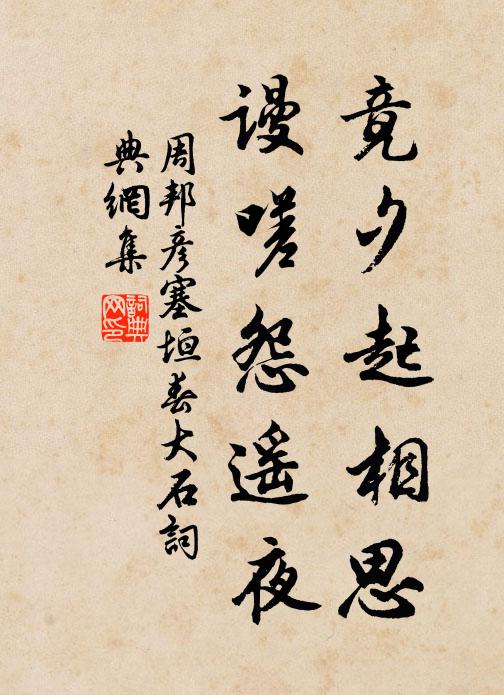 竟夕起相思
谩嗟怨遥夜
周邦彦塞垣春大石詞
典網集
詞典网印